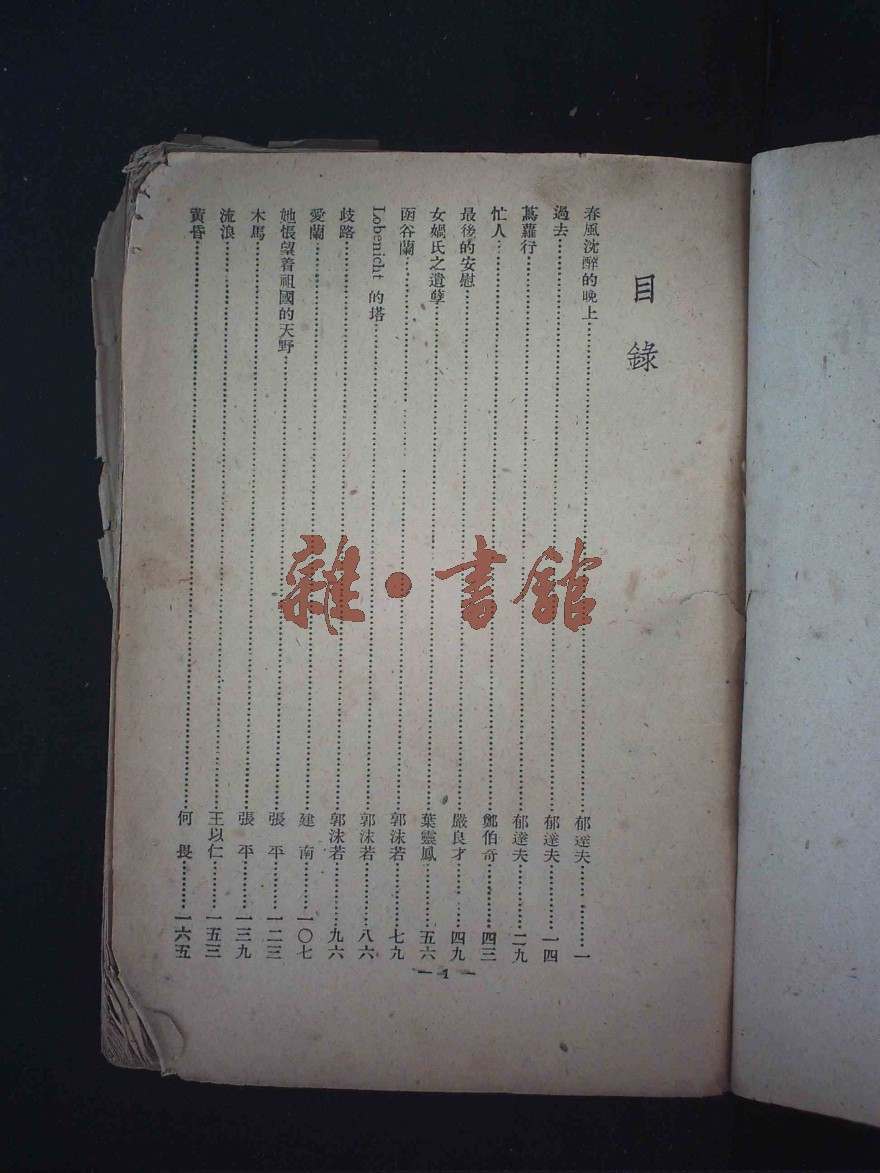 目錄
春風沈醉的晚上……郁達夫……一
過去……郁達夫……一四
蔦蘿行……郁達夫……二九
忙人……鄭伯奇……四三
最後的安慰……嚴良才……四九
女媧氏之遺孽……葉靈鳳……五六
函谷關……郭沫若……七九
Lobenicht 的塔……郭沫若……八六
歧路……郭沫若……九六
愛蘭……建南……一〇七
她悵望着祖國的天野……張平……一二三
木馬……張平……一三九
流浪……王以仁……一五三
黃昏……何畏……一六五
— 1 —
雜·書館